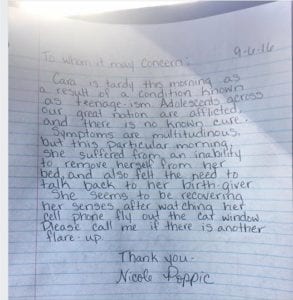 9-6-16
To whom it may concern:
Cara is tardy this morning as
a result of a condition known
as teenage-ism. Adolescents across
our great nation are afflicted,
and there is no known cure.
Symptoms are multitudinous,
but this particular morning,
she suffered from an inability
to remove herself from her
bed, and also felt the need to
talk back to her birth-giver.
She seems to be recovering
her senses after watching her
cell phone fly out the car window.
Please call me if there is another
flare-up.
Thank you-
Nicole Poppic